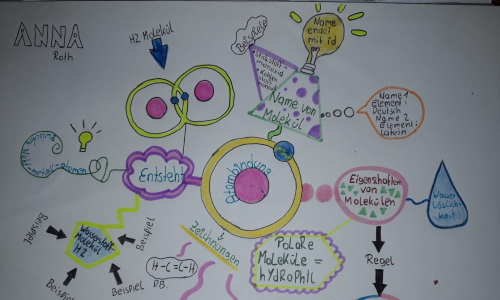 ANNA
Roth
H2 Molekül
Beispiele
Name
endet
mit id
Name von
Molekül
Name 1
Element:
Deutsch
Name 2
Element:
latein
Entsteht
Atombindung
Eigenschaften
von
Molekülen
Wasser
Löslich-
keit
Wasserstoff-
Molekül
H2
Beispiel
Beispiel
Beispiel
Beispiel
Zeichnungen
H-C=C-H
D.B.
POLARE
MOLEKÜLE =
hYdROPhIL
Regel